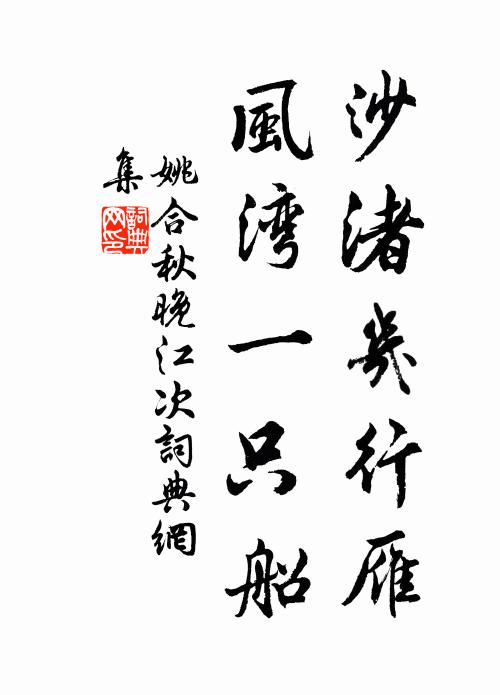 沙渚幾行雁
風湾一只船
姚合秋晚江次詞典網
集
詞典
网印